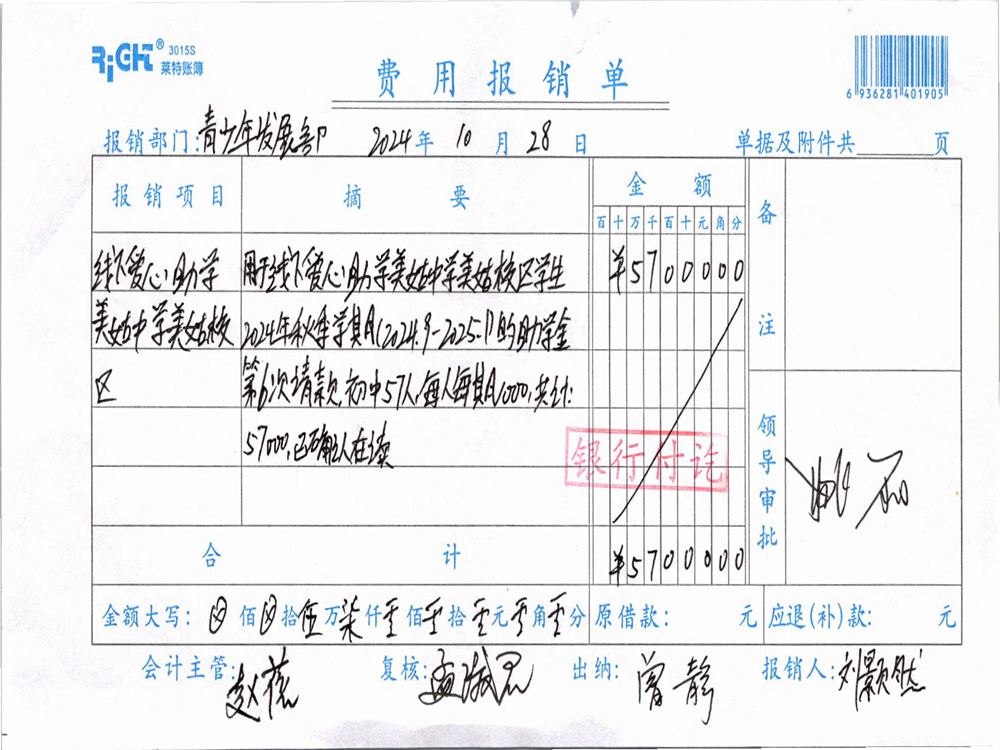 RiGHT® 3015S
莱特账簿
费用报销单
6 936281 401905
报销部门:青少年发展部 2024年10月28日 单据及附件共 页
报销项目 摘要 金额 备注
百十万千百十元角分
线下爱心助学 用于线下爱心助学美姑中学美姑校区学生 ¥5700000
美姑中学美姑校 2024年秋季学期(2024.9-2025.1)的助学金
区 第6次请款,初中57人,每人每期1000,共计:
57000,已确认人在读
银行付讫
领导审批
合计 ¥5700000
金额大写: 佰 拾伍万柒仟 佰 拾 元 角 分 原借款: 元 应退(补)款: 元
会计主管: 赵 复核: 孟 出纳: 曾静 报销人: 刘颢然